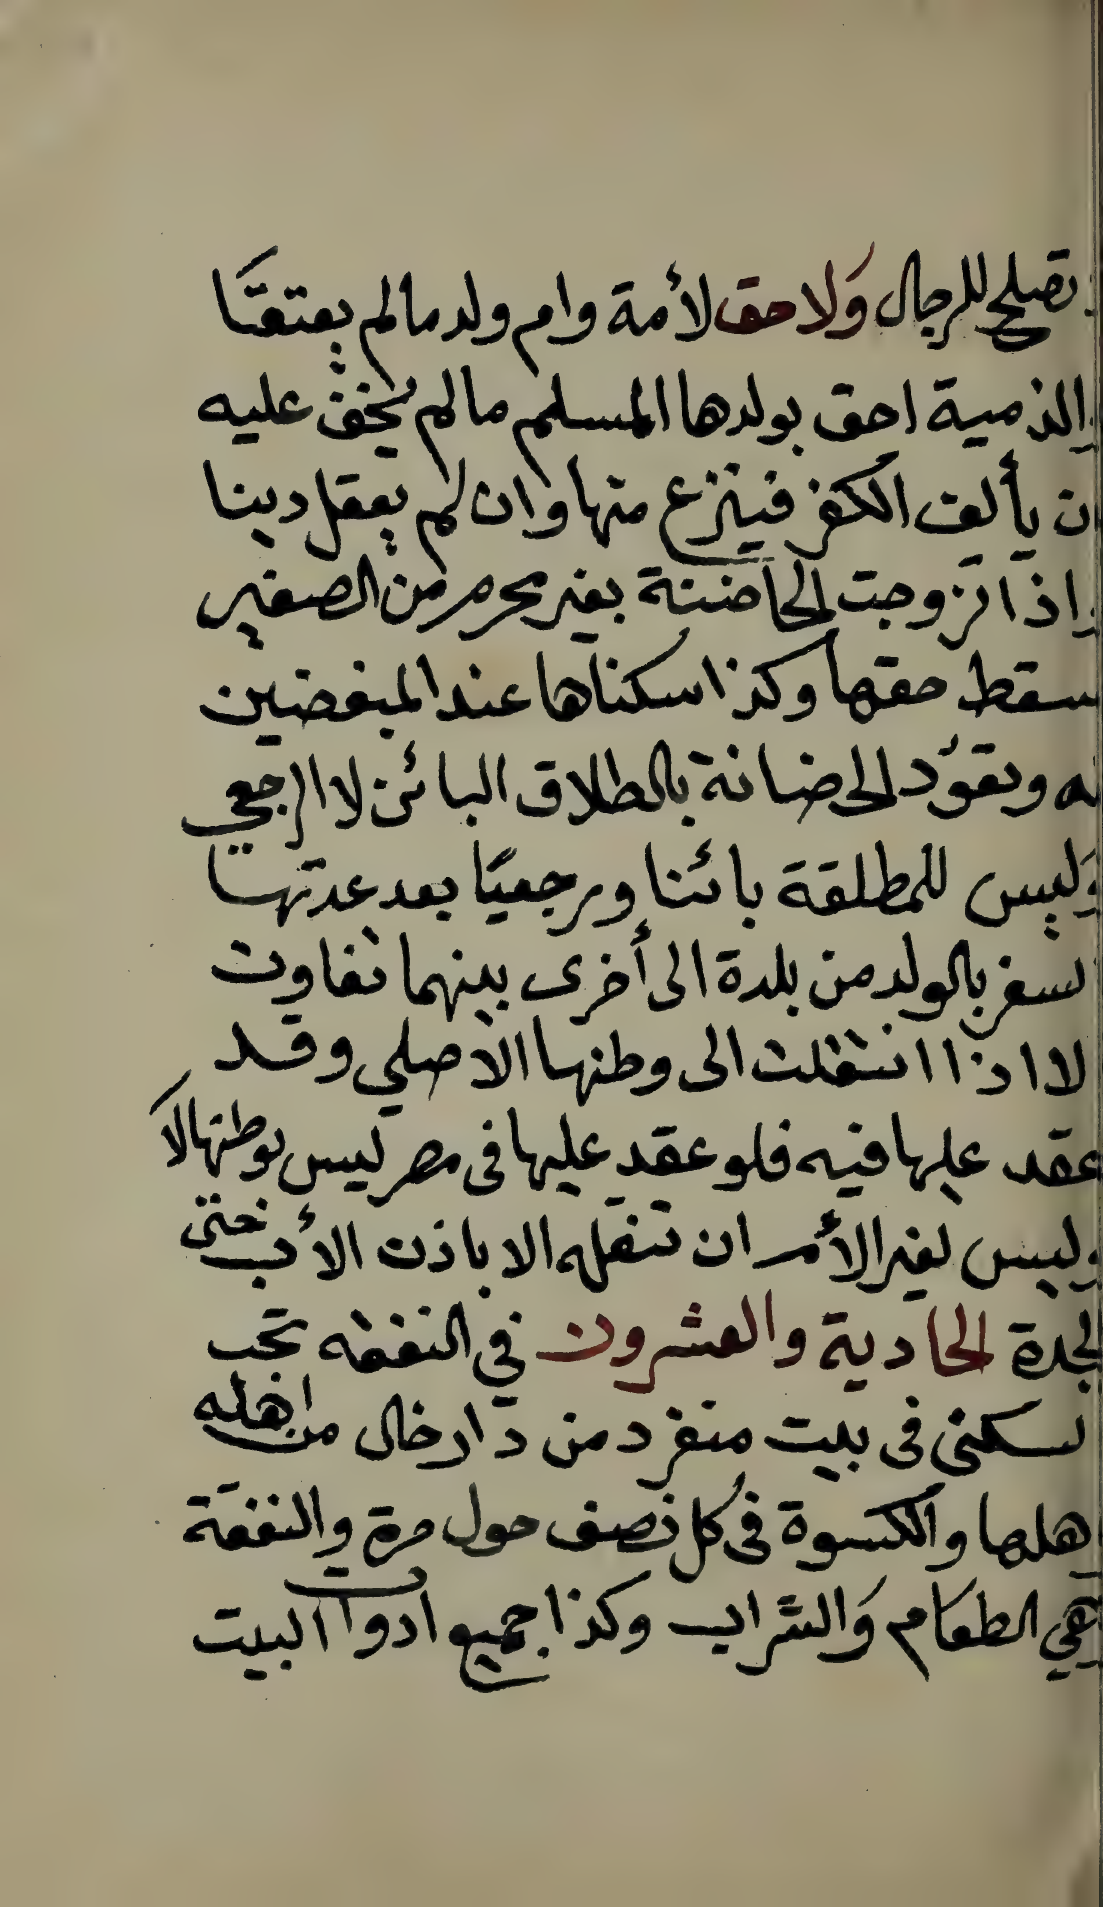 تصلح للرجال وَلا حق لأمة وام ولد مالم يعتقَا
والذمية احق بولدها المسلم مالم يُخف عليه
ان يألف الكفر فينزع منها وان لم يعقل دينا
واذا تزوجت الحاضنة بغير محرم من الصغير
سقط حقها وكذا سكناها عند المبغضين
له وتعوُد الحضانة بالطلاق البائن لا الرجعي
وَليس للمطلقة بائنا ورجعيًا بعد عدتها
السفر بالولد من بلدة الى أخرى بينهما تفاوت
الا اذا انتقلت الى وطنها الاصلي وقد
عقد عليها فيه فلو عقد عليها فى مصر ليس بوطنها لاَ
وليس لغير الأم ان تنقله الا باذن الأب حتى
الجدة الحادية والعشرون في النفقه تجب
السكنى فى بيت منفرد من دار خال من اهله
واهلها والكسوة فى كل نصف حول مرة والنفقة
هي الطعام وَالشراب وكذا جميع ادوات البيت